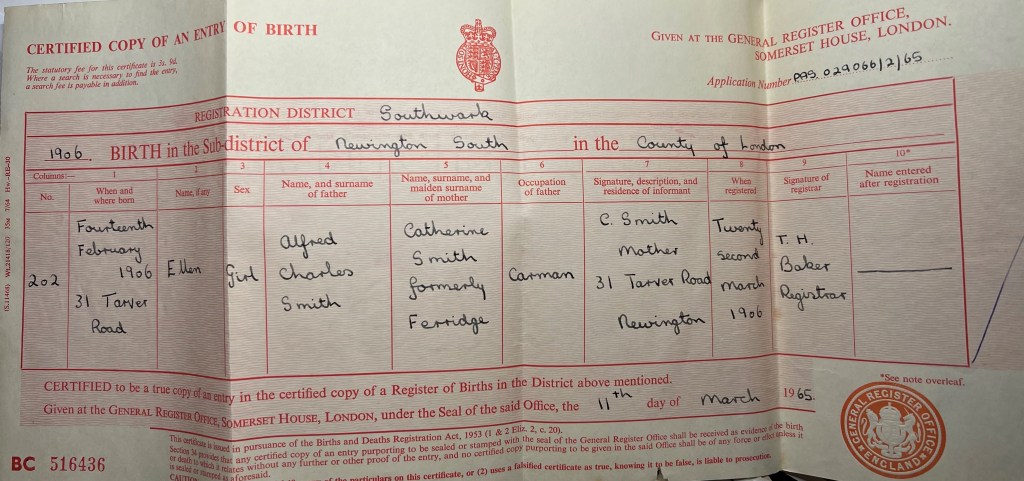 CERTIFIED COPY OF AN ENTRY OF BIRTH
GIVEN AT THE GENERAL REGISTER OFFICE,
SOMERSET HOUSE, LONDON.
The statutory fee for this certificate is 3s. 9d.
Where a search is necessary to find the entry,
a search fee is payable in addition.
Application Number PAS 029066/2/65
REGISTRATION DISTRICT Southwark
1906. BIRTH in the Sub-district of Newington South in the County of London
Columns:— 1 2 3 4 5 6 7 8 9 10*
No.
When and
where born
Name, if any
Sex
Name, and surname
of father
Name, surname, and
maiden surname
of mother
Occupation
of father
Signature, description, and
residence of informant
When
registered
Signature of
registrar
Name entered
after registration
202
Fourteenth
February
1906
31 Tarver
Road
Ellen
Girl
Alfred
Charles
Smith
Catherine
Smith
formerly
Ferridge
Carman
C. Smith
Mother
31 Tarver Road
Newington
Twenty
second
March
1906
T. H.
Baker
Registrar
CERTIFIED to be a true copy of an entry in the certified copy of a Register of Births in the District above mentioned.
*See note overleaf.
Given at the GENERAL REGISTER OFFICE, SOMERSET HOUSE, LONDON, under the Seal of the said Office, the 11th day of March 1965.
This certificate is issued in pursuance of the Births and Deaths Registration Act, 1953 (1 & 2 Eliz. 2, c. 20).
Section 34 provides that any certified copy of an entry purporting to be sealed or stamped with the seal of the General Register Office shall be received as evidence of the birth
or death to which it relates without any further or other proof of the entry, and no certified copy purporting to be given in the said Office shall be of any force or effect unless it
is sealed or stamped as aforesaid.
of the particulars on this certificate, or (2) uses a falsified certificate as true, knowing it to be false, is liable to prosecution.
BC 516436
GENERAL REGISTER OFFICE
ENGLAND